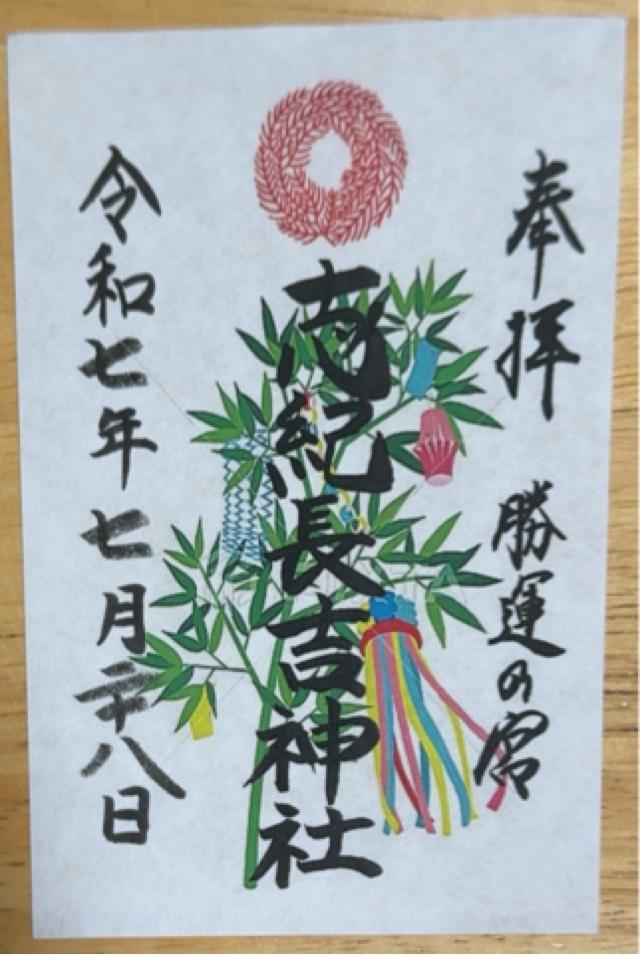 奉拝 勝運の宮
志紀長吉神社
令和七年七月二十八日